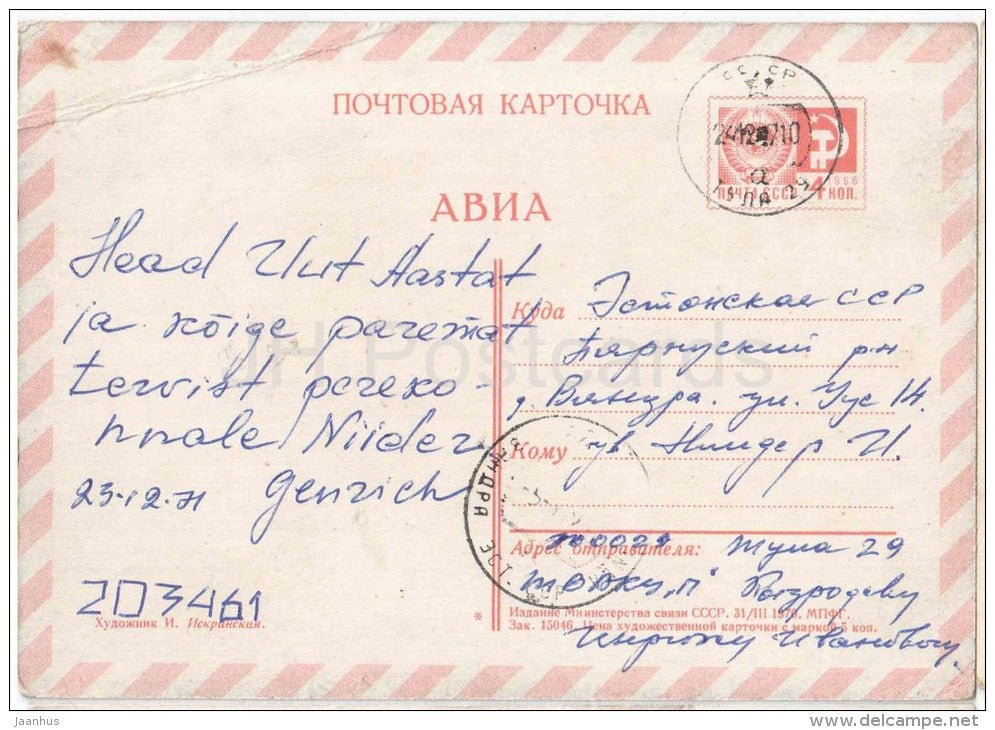 ПОЧТОВАЯ КАРТОЧКА
АВИА
СССР
24.12.7110
ТУЛА 29
ПОЧТА СССР
1966
4 КОП.
Head Uut Aastat
ja kõige paremat
tervist pereko-
nnale Niider
23-12-71 Genrich
Куда Эстонская ССР
Пярнуский р-н
д. Вяндра. ул. Уус 14.
Кому гр. Ниидер И.
ВЯНДРА
Адрес отправителя: Тула 29
Выродову
203461
Художник И. Искринская.
* Издание Министерства связи СССР. 31/III 1970. МПФГ.
Зак. 15046. Цена художественной карточки с маркой 5 коп.
Ивановичу
JH Postcards
jaanhus
www.delcampe.net